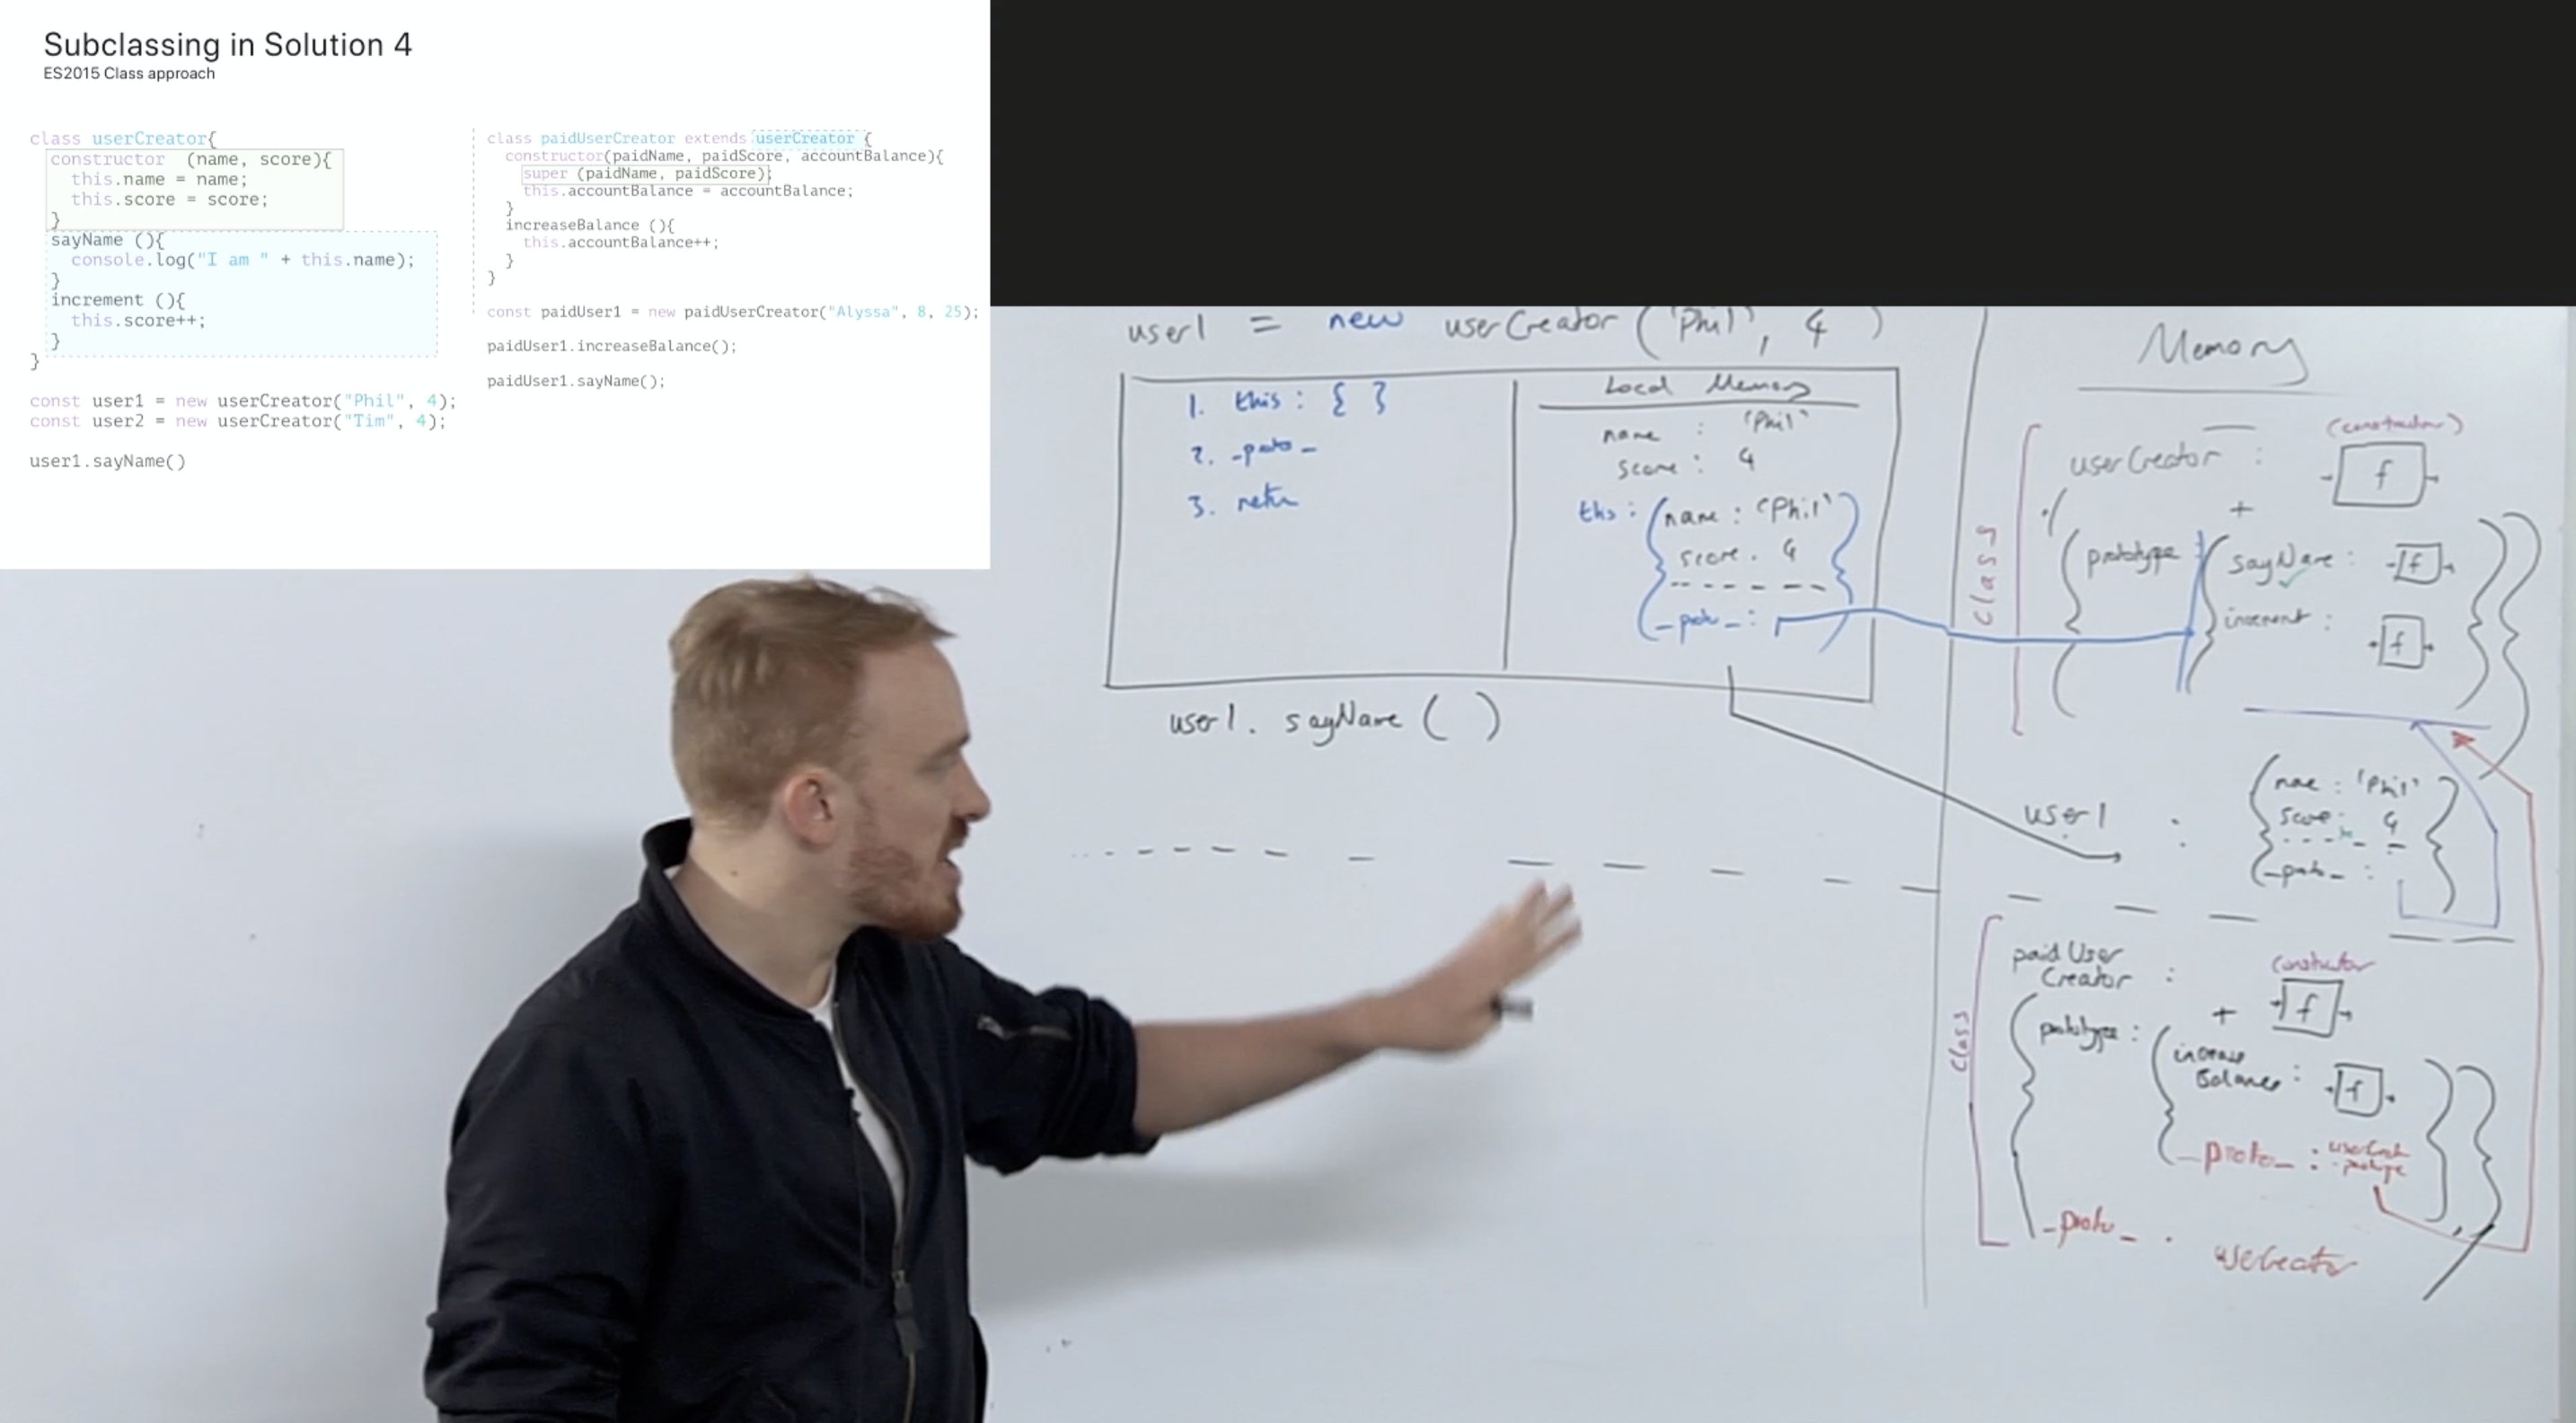 Subclassing in Solution 4
ES2015 Class approach
class userCreator{
constructor  (name, score){
this.name = name;
this.score = score;
}
sayName (){
console.log("I am " + this.name);
}
increment (){
this.score++;
}
}
const user1 = new userCreator("Phil", 4);
const user2 = new userCreator("Tim", 4);
user1.sayName()
class paidUserCreator extends userCreator {
constructor(paidName, paidScore, accountBalance){
super (paidName, paidScore);
this.accountBalance = accountBalance;
}
increaseBalance (){
this.accountBalance++;
}
}
const paidUser1 = new paidUserCreator("Alyssa", 8, 25);
paidUser1.increaseBalance();
paidUser1.sayName();
user1 = new userCreator ('Phil', 4 )
1. this : { }
2. _proto_
3. retn
Local Memory
name : 'Phil'
score : 4
this : { name : 'Phil'
score : 4
_proto_ : }
user1. sayName ( )
Memory
Class
(constructor)
userCreator : f
+
prototype : { sayName : f
increment : f
user1 : { name : 'Phil'
score : 4
_proto_ : }
Class
paid User
Creator :
constructor
+ f
prototype : { increase
Balance : f
_proto_ : userCreator
.prototype
_proto_ : userCreator